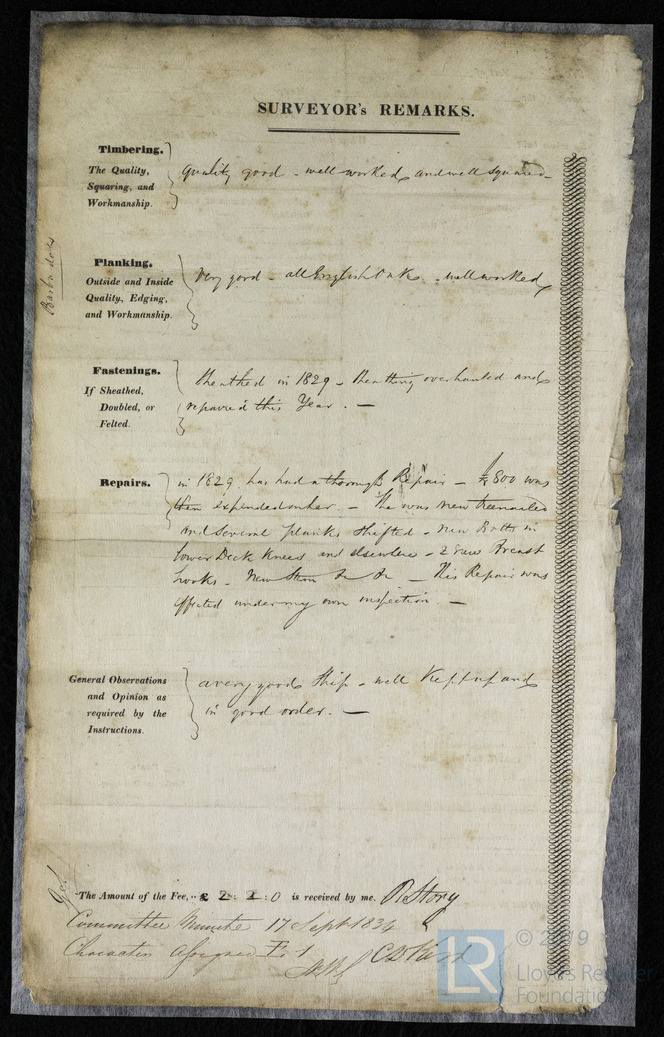 SURVEYOR's REMARKS.
Timbering.
The Quality,
Squaring, and
Workmanship.
quality good - well worked and well squared -
Barbadoes
Planking.
Outside and Inside
Quality, Edging,
and Workmanship.
Very good - all English Oak - well worked
Fastenings.
If Sheathed,
Doubled, or
Felted.
Sheathed in 1829 - Sheathing overhauled and
repaired this Year. -
Repairs.
in 1829 has had a thorough Repair - £800 was
then expended on her. - She was new treenailed
and Several planks Shifted - new Bolts in
lower Deck Knees and elsewhere - 2 new Breast
hooks - New Stem &c &c - This Repair was
effected under my own inspection. -
General Observations
and Opinion as
required by the
Instructions.
a very good Ship - well Kept up and
in good order. -
The Amount of the Fee, £ 2 : 2 : 0 is received by me. R. Story
Committee Minute 17 Sept 1834
Character Assigned 1
© 2019
LR
Lloyd's Register
Foundation